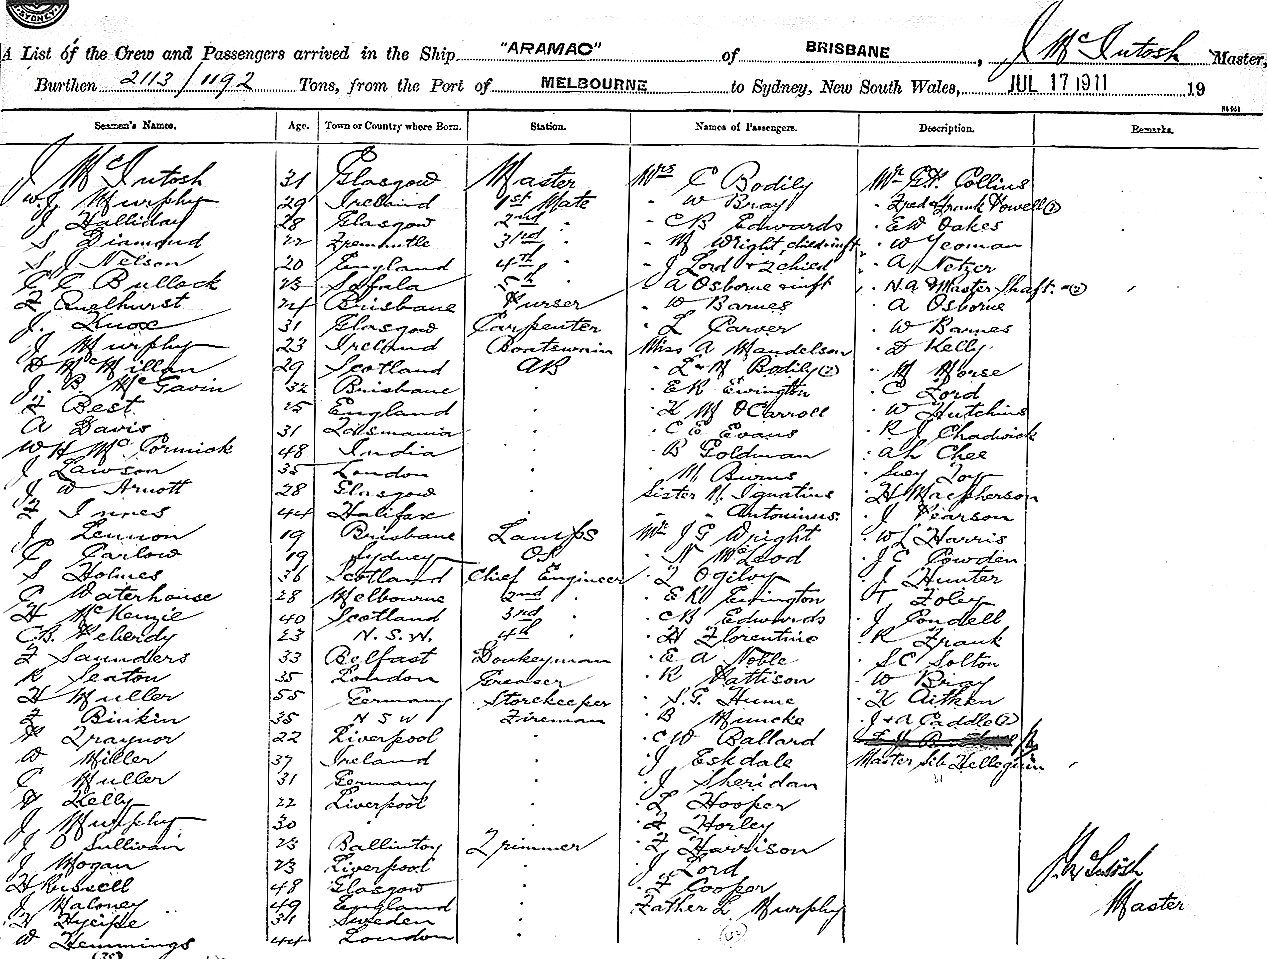 SYDNEY
A List of the Crew and Passengers arrived in the Ship "ARAMAC" of BRISBANE, J McIntosh Master,
Burthen 2113/1192 Tons, from the Port of MELBOURNE to Sydney, New South Wales, JUL 17 1911 19
Seamen's Names. Age. Town or Country where Born. Station. Names of Passengers. Description. Remarks.
J McIntosh 31 Glasgow Master Mrs C Bodily Mr G.H. Collins
W J Murphy 29 Ireland 1st Mate " W Bray " Fred & Frank Powell (2)
J Halliday 28 Glasgow 2nd " " C B Edwards " E W Oakes
S Diamond 22 Fremantle 3rd " " M Wright, child & inft " W Yeoman
S J Nelson 20 England 4th " " J Lord & 2 child " A Netzer
C C Bullock 23 Sofala 5th " " A Osborne & inft " N.A. & Master Shaft (2)
F Quelhurst 24 Brisbane Purser " W Barnes " A Osborne
J Knox 31 Glasgow Carpenter " L Carver " W Barnes
J Murphy 23 Ireland Boatswain Miss A Mandelson " D Kelly
D McMillan 29 Scotland AB " L & M Bodily (2) " M Morse
J. B McGavin 32 Brisbane " " E K Ewington " C Lord
F Best 25 England " " K M O'Carroll " W Hutchins
A Davis 31 Tasmania " " C E Evans " R J Chadwick
W H McCormick 48 India " " B Goldman " Ah Chee
J Lawson 35 London " " M Burns " Suey Toy
J W Arnott 28 Glasgow " Sister M. Ignatius " H Macpherson
F Innes 44 Halifax " " " Antoninus " J Pearson
J Lennon 19 Brisbane Lamps Mr J G Wright " W L Harris
C Carlow 19 Sydney OS " N McLeod " J C Cowden
S Holmes 36 Scotland Chief Engineer " T Ogilvy " J Hunter
C Waterhouse 28 Melbourne 2nd " " E K Ewington " T Foley
H McKenzie 40 Scotland 3rd " " C B Edwards " J Condell
C.B. Peberdy 23 N.S.W. 4th " " H Florentine " R Frank
F Saunders 33 Belfast Donkeyman " E A Noble " S C Solton
R Seaton 35 London Greaser " R Pattison " W Bray
H Muller 55 Germany Storekeeper " S.G. Hume " K Aitken
F Binkin 35 N S W Fireman " B Muncke " J & A Caddle (2)
P Traynor 22 Liverpool " " C W Ballard
W Miller 37 Ireland " " J Eskdale Master Sib Helleguin
C Muller 31 Germany " " J Sheridan 31
P Kelly 22 Liverpool " " L Hooper
J Murphy 30 " " " F Horley
J O'Sullivan 23 Ballintoy Trimmer " F Harrison
J Hogan 23 Liverpool " " J Lord
H Russell 48 Glasgow " " F Cooper J McIntosh
J Maloney 49 England " Father L Murphy Master
31 Sweden "
W Hemmings 44 London "
(38)